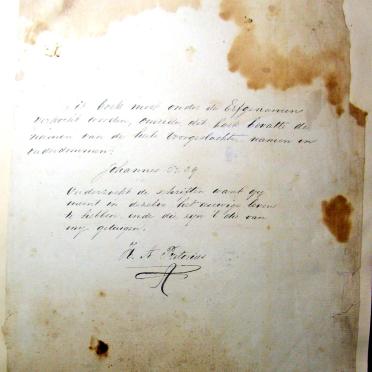 is boek moet onder de Erfgenamen
verkocht worden, omreden dit boek bevatte de
namen van de hele voorgeslachten, namen en
ouderdommen.
Johannes 5: 39
Onderzoekt de schriften want gy
meent in dezelve het eeuwige leven
te hebben ende die syn 't die van
my getuigen.
H. A. Pretorius